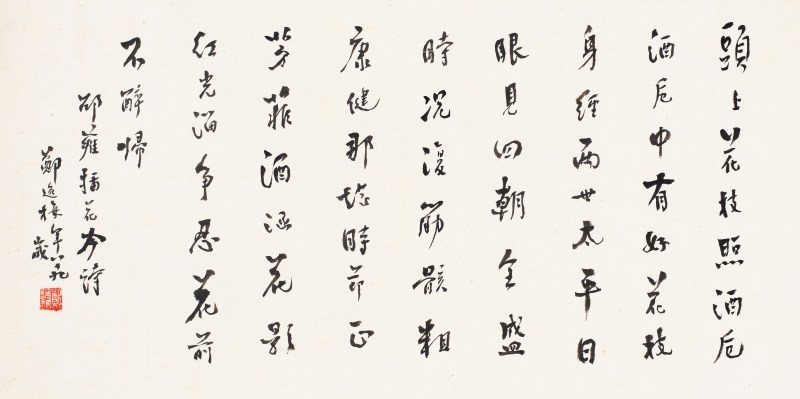 頭上花枝照酒卮
酒卮中有好花枝
身經兩世太平日
眼見四朝全盛
時況復筋骸粗
康健那堪時節正
芳菲酒涵花影
紅光溜爭忍花前
不醉歸
邵雍插花吟詩
鄭逸梅年八九
歲